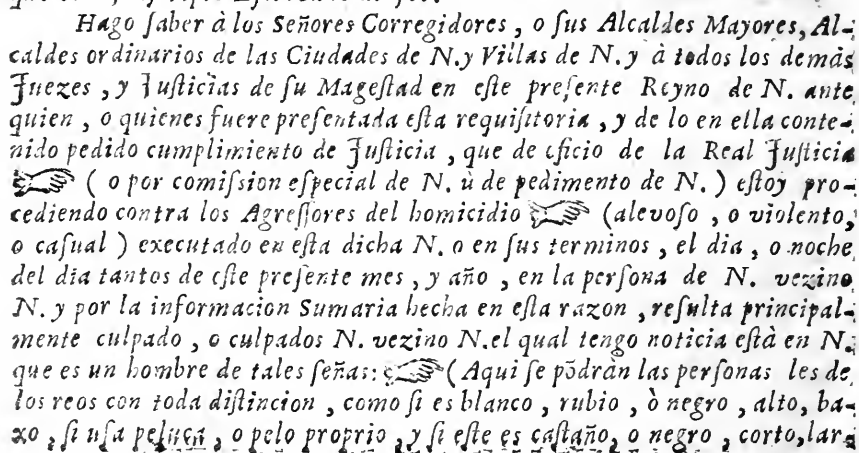 Hago ſaber à los Señores Corregidores, o ſus Alcaldes Mayores, Al-
caldes ordinarios de las Ciudades de N. y Villas de N. y à todos los demàs
Juezes, y Juſticias de ſu Mageſtad en eſte preſente Reyno de N. ante
quien, o quienes fuere preſentada eſta requiſitoria, y de lo en ella conte-
nido pedido cumplimiento de Juſticia, que de oficio de la Real Juſticia
☞ ( o por comiſsion eſpecial de N. ù de pedimento de N. ) eſtoy pro-
cediendo contra los Agreſſores del homicidio ☞ (alevoſo, o violento,
o caſual ) executado en eſta dicha N. o en ſus terminos, el dia, o noche
del dia tantos de eſte preſente mes, y año, en la perſona de N. vezino
N. y por la informacion Sumaria hecha en eſta razon, reſulta principal-
mente culpado, o culpados N. vezino N. el qual tengo noticia eſtà en N.
que es un hombre de tales ſeñas: ☞ (Aqui ſe põdràn las perſonas les de
los reos con toda diſtincion, como ſi es blanco, rubio, ò negro, alto, ba-
xo, ſi uſa peluca, o pelo proprio, y ſi eſte es caſtaño, o negro, corto, lar-